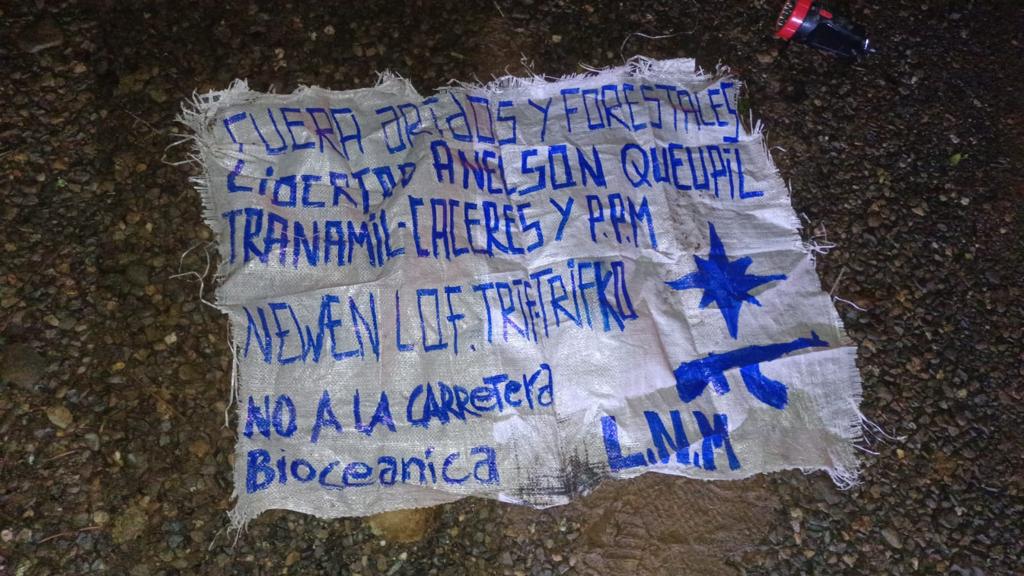 FUERA ARIdOS Y FORESTALES
LIBERTAD A NELSON QUEUPIL
TRANAMIL-CACERES Y P.P.M
NEWEN LOF. TRIF-TRIFKO
NO A LA CARReTERa
Bioceanica
L.N.M